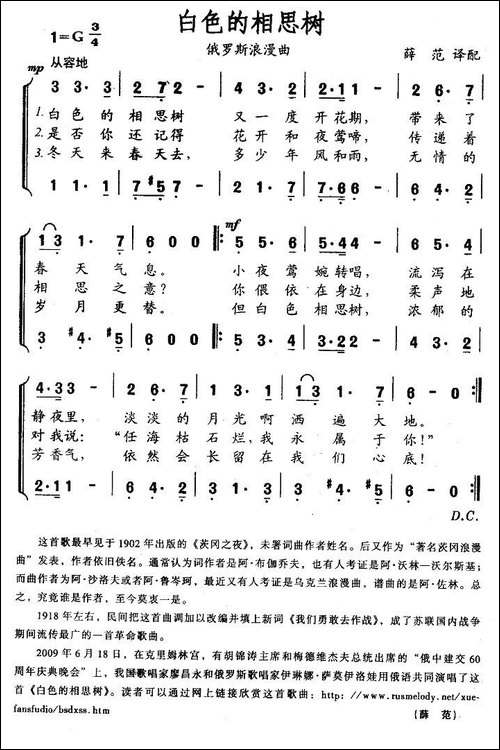 白色的相思树
1=G 3/4
俄罗斯浪漫曲
薛 范 译配
从容地
mp
3 3· 3 | 2 7 2 - | 4 3· 2 | 2·1 1 - | 2 6· 7 |
1. 白 色 的 相 思 树 又 一 度 开 花 期， 带 来 了
2. 是 否 你 还 记 得 花 开 和 夜 莺 啼， 传 递 着
3. 冬 天 来 春 天 去， 多 少 年 风 和 雨， 无 情 的
1 1· 1 | 7 #5 7 - | 2 1· 7 | 7·6 6 - | 6 4· 2 |
mf
1 3 1· 7 | 6 0 0 :| 5 5· 6 | 5·4 4 - | 4 3· 2 |
春 天 气 息。 小 夜 莺 婉 转 唱， 流 泻 在
相 思 之 意？ 你 偎 依 在 身 边， 柔 声 地
岁 月 更 替。 但 白 色 相 思 树， 浓 郁 的
3 #4· 5 | 6 0 0 :| 5 5· 5 | 5·4 4 - | 4 3· 2 |
4·3 3 - | 2 6· 7 | 1 3· 2 | 1 3 1· 7 | 6 - 0 :|
静 夜 里， 淡 淡 的 月 光 啊 洒 遍 大 地。
对 我 说： “任 海 枯 石 烂， 我 永 属 于 你！”
芳 香 气， 依 然 会 长 留 在 我 们 心 底！
2·1 1 - | 2 6· 5 | 6 4· 2 | 3 #4· 5 | 6 - 0 :|
D.C.
这首歌最早见于 1902 年出版的《茨冈之夜》，未署词曲作者姓名。后又作为“著名茨冈浪漫
曲”发表，作者依旧佚名。通常认为词作者是阿·布伽乔夫，也有人考证是阿·沃林—沃尔斯基；
而曲作者为阿·沙洛夫或者阿·鲁岑珂，最近又有人考证是乌克兰浪漫曲，谱曲的是阿·佐林。总
之，究竟谁是作者，至今莫衷一是。
1918 年左右，民间把这首曲调加以改编并填上新词《我们勇敢去作战》，成了苏联国内战争
期间流传最广的一首革命歌曲。
2009 年 6 月 18 日，在克里姆林宫，有胡锦涛主席和梅德维杰夫总统出席的“俄中建交 60
周年庆典晚会”上，我国歌唱家廖昌永和俄罗斯歌唱家伊琳娜·萨莫伊洛娃用俄语共同演唱了这
首《白色的相思树》。读者可以通过网上链接欣赏这首歌曲：http://www.rusmelody.net/xue-
fansfudio/bsdxss.htm
（薛 范）